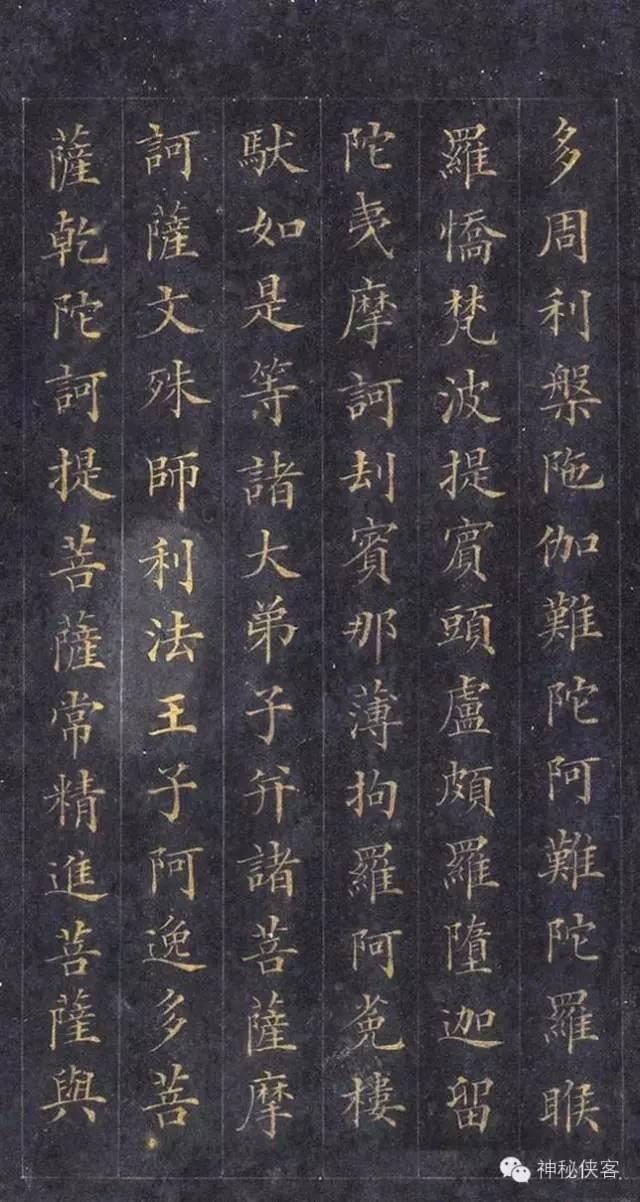 多周利槃陁伽難陀阿難陀羅睺
羅憍梵波提賔頭盧頗羅墮迦留
陀夷摩訶刦賔那薄拘羅阿㝹樓
馱如是等諸大弟子并諸菩薩摩
訶薩文殊師利法王子阿逸多菩
薩乾陀訶提菩薩常精進菩薩與
神秘侠客